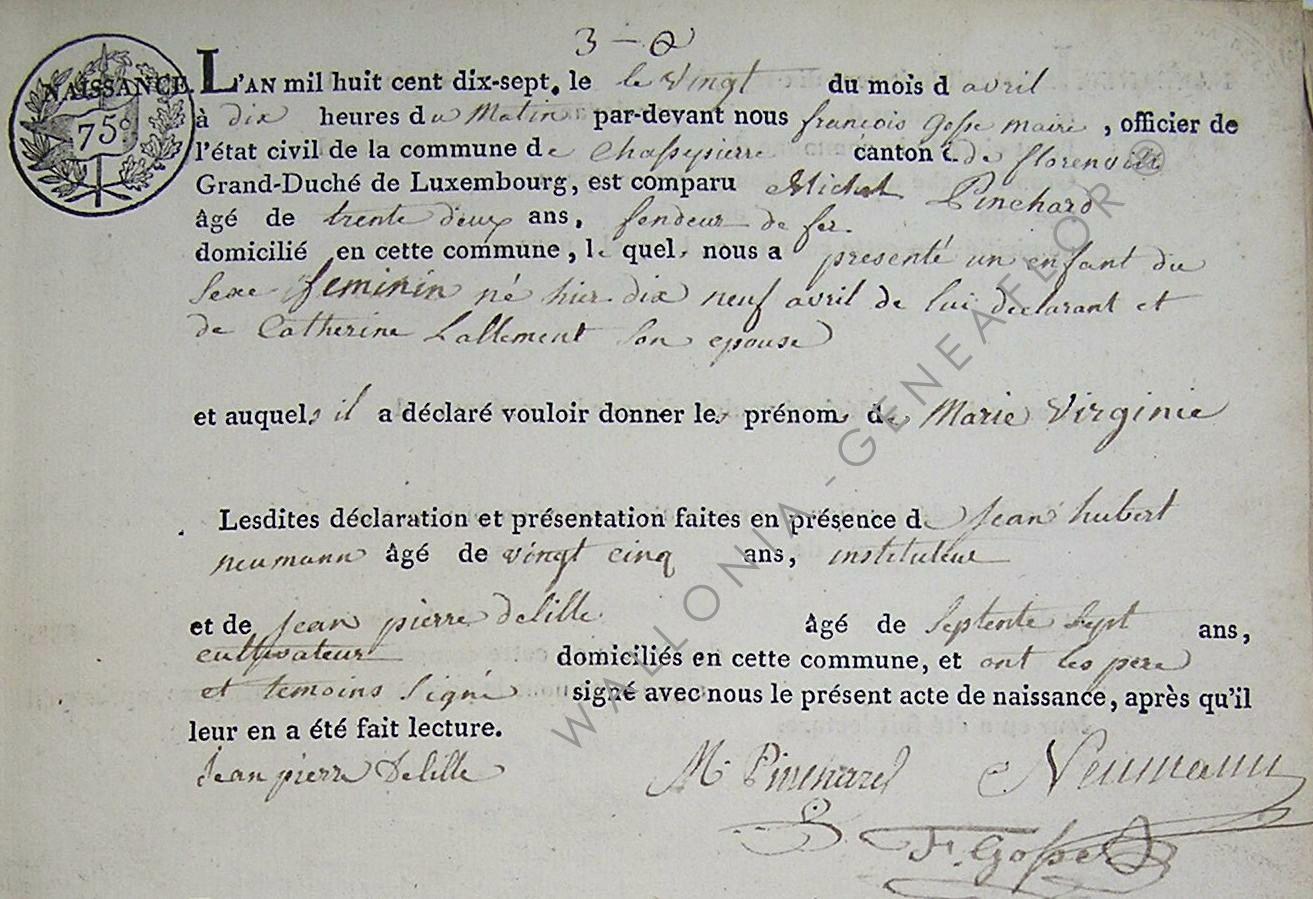 3 - 
NAISSANCE. L'AN mil huit cent dix-sept, le le vingt du mois d avril
75c
à dix heures du Matin par-devant nous françois Gosse maire, officier de
l'état civil de la commune de Chassepierre canton de florenville
Grand-Duché de Luxembourg, est comparu Michel Pinchard
âgé de trente deux ans, fendeur de fer
domicilié en cette commune, le quel nous a presenté un enfant du
sexe feminin né hier dix neuf avril de lui declarant et
de Catherine Lallement son epouse
et auquel il a déclaré vouloir donner les prénoms de Marie Virginie
Lesdites déclaration et présentation faites en présence de jean hubert
neumann âgé de vingt cinq ans, instituteur
et de jean pierre delille âgé de septente sept ans,
cultivateur domiciliés en cette commune, et ont les pere
et temoins signé signé avec nous le présent acte de naissance, après qu'il
leur en a été fait lecture.
Jean pierre Delille M. Pinchard Neumann
F. Gosse
WALLONIA - GENEAFLOR ®